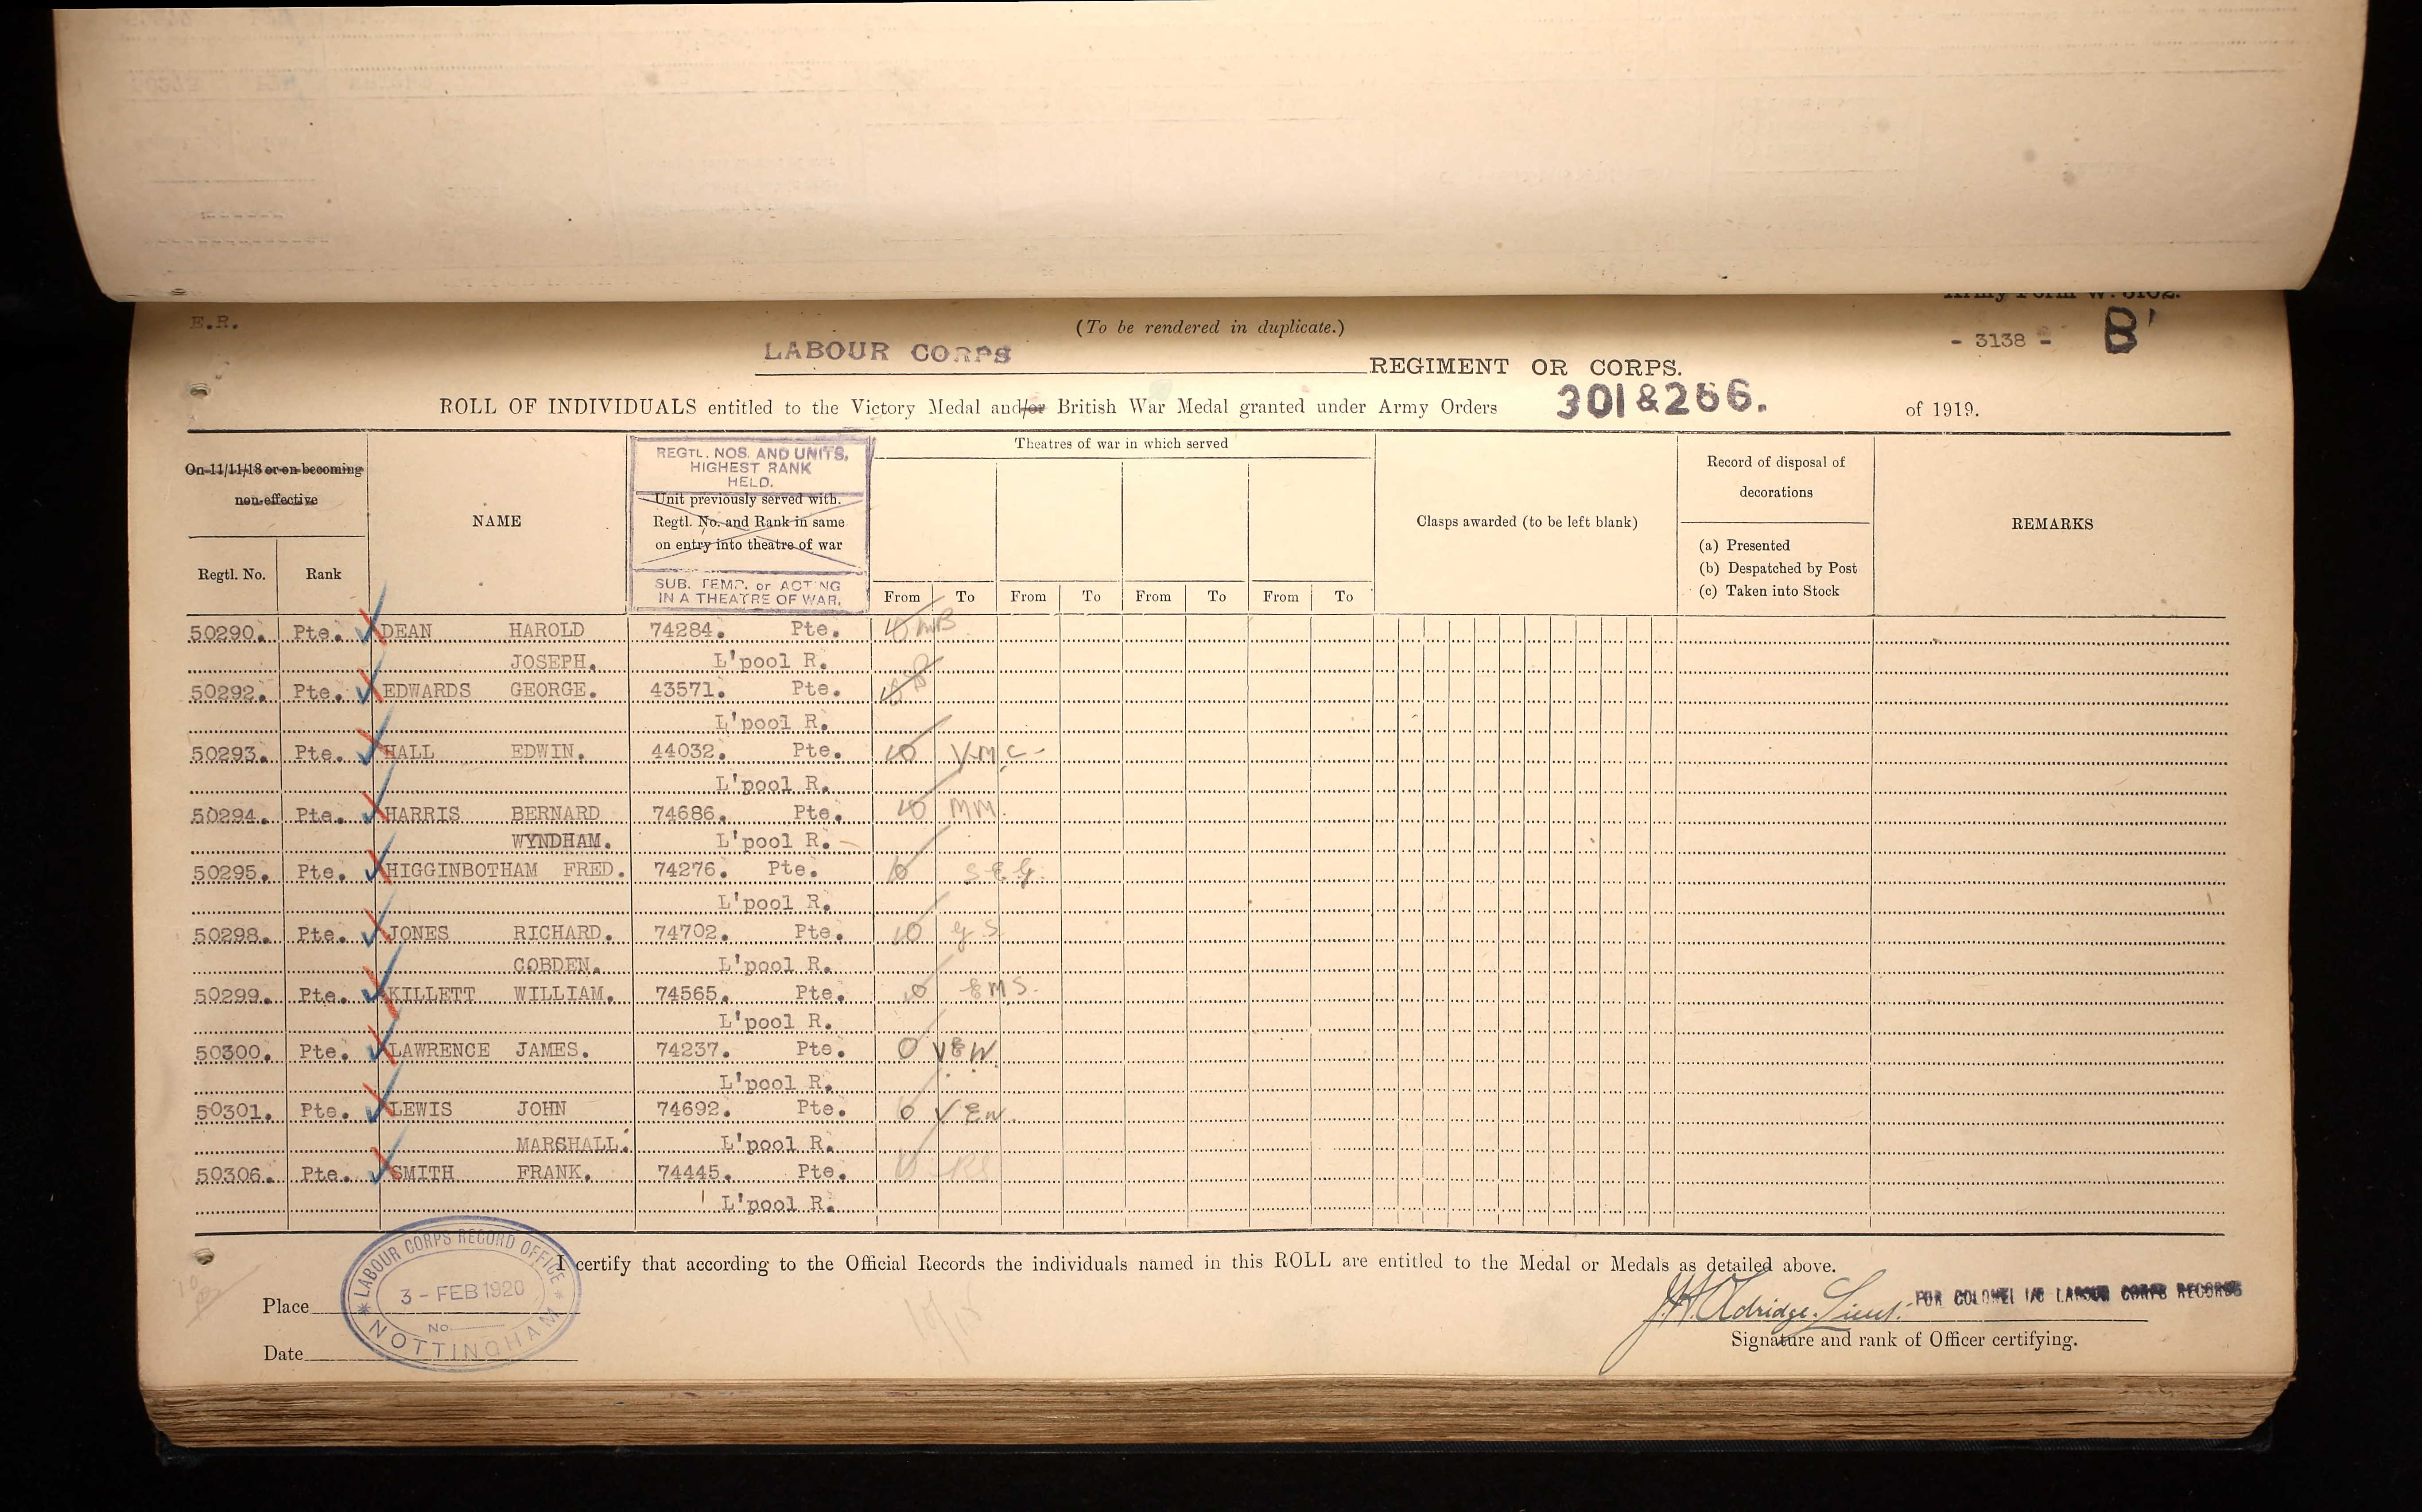 E.R.
(To be rendered in duplicate.)
- 3138 -
B'
LABOUR CORPS
REGIMENT OR CORPS.
ROLL OF INDIVIDUALS entitled to the Victory Medal and/or British War Medal granted under Army Orders 301 & 266. of 1919.
On 11/11/18 or on becoming
non-effective
Regtl. No.
Rank
NAME
REGTL. NOS. AND UNITS,
HIGHEST RANK
HELD.
Unit previously served with.
Regtl. No. and Rank in same
on entry into theatre of war
SUB. TEMP. or ACTING
IN A THEATRE OF WAR.
Theatres of war in which served
From To From To From To From To
Clasps awarded (to be left blank)
Record of disposal of
decorations
(a) Presented
(b) Despatched by Post
(c) Taken into Stock
REMARKS
50290. Pte. DEAN HAROLD 74284. Pte.
JOSEPH. L'pool R.
50292. Pte. EDWARDS GEORGE. 43571. Pte.
L'pool R.
50293. Pte. HALL EDWIN. 44032. Pte.
L'pool R.
50294. Pte. HARRIS BERNARD 74686. Pte. MM
WYNDHAM. L'pool R.
50295. Pte. HIGGINBOTHAM FRED. 74276. Pte.
L'pool R.
50298. Pte. JONES RICHARD. 74702. Pte.
COBDEN. L'pool R.
50299. Pte. KILLETT WILLIAM. 74565. Pte. EMS.
L'pool R.
50300. Pte. LAWRENCE JAMES. 74237. Pte.
L'pool R.
50301. Pte. LEWIS JOHN 74692. Pte.
MARSHALL. L'pool R.
50306. Pte. SMITH FRANK. 74445. Pte.
L'pool R.
I certify that according to the Official Records the individuals named in this ROLL are entitled to the Medal or Medals as detailed above.
LABOUR CORPS RECORD OFFICE
3 - FEB 1920
No.
NOTTINGHAM
Place
Date
J.H. Aldridge. Lieut.
FOR COLONEL I/C LABOUR CORPS RECORDS
Signature and rank of Officer certifying.